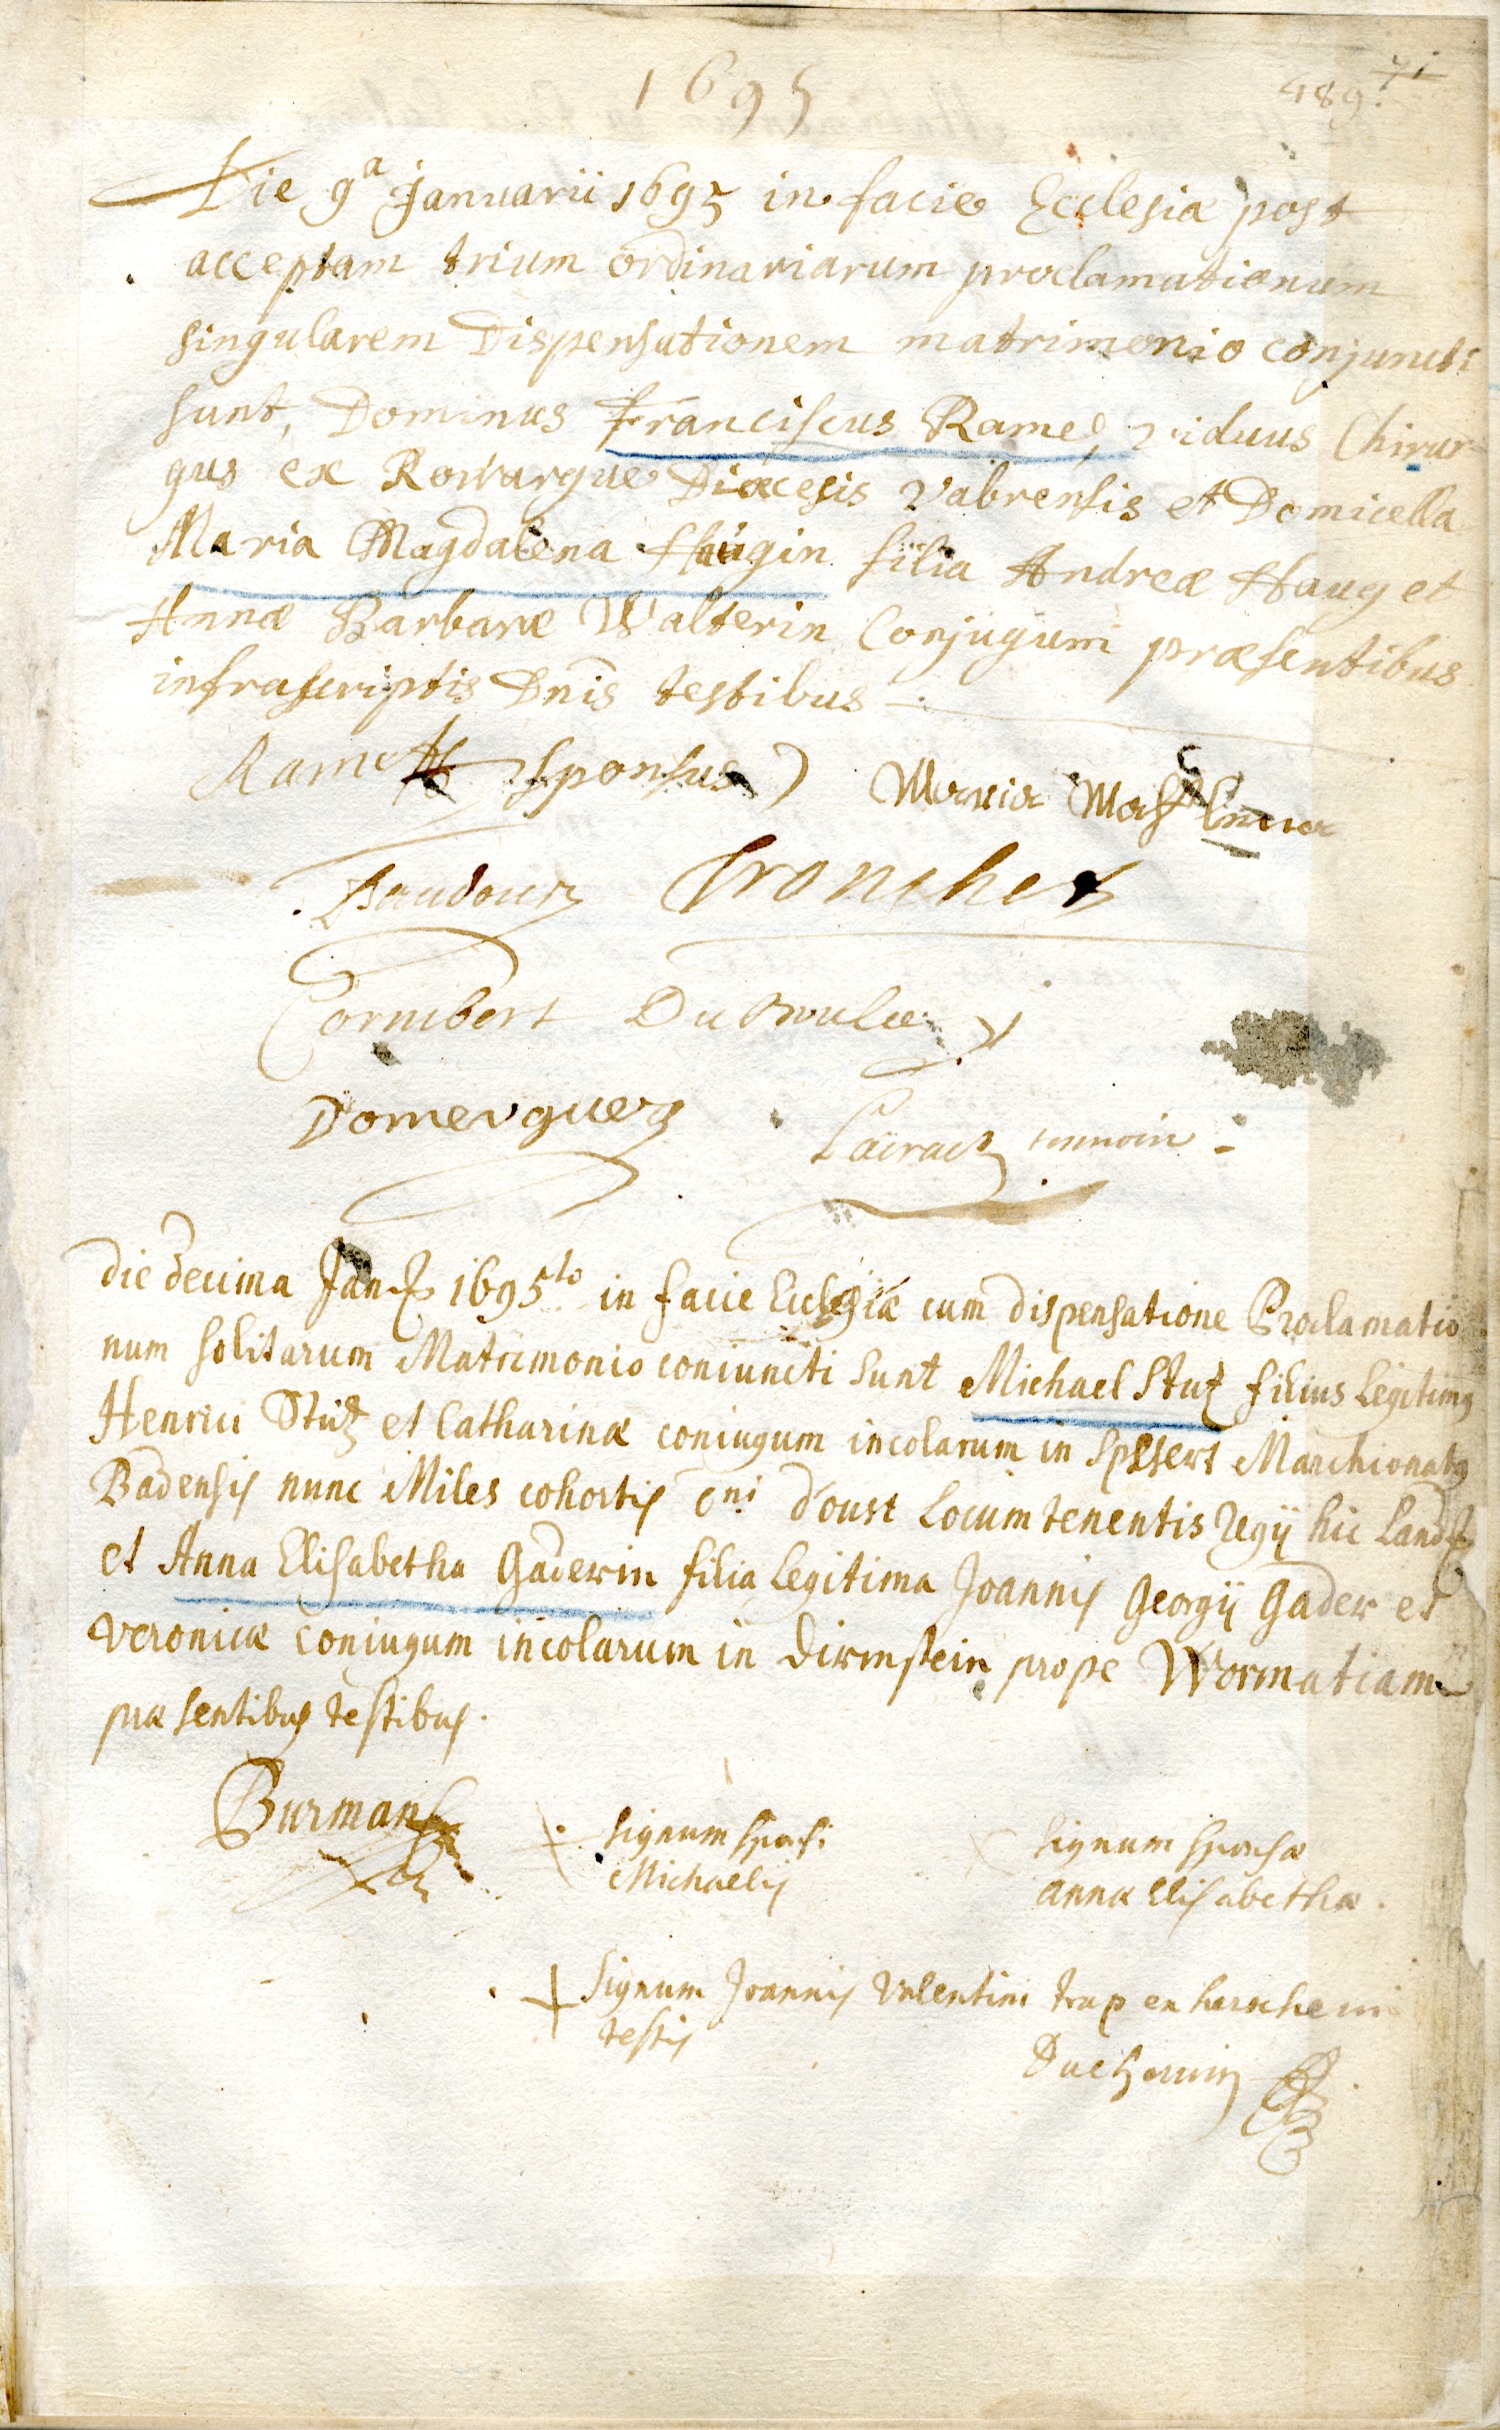 1695
489. 71
Die 9a Januarii 1695 in facie Ecclesiæ post
acceptam trium ordinariarum proclamationum
singularem Dispensationem matrimonio conjuncti
sunt, Dominus Franciscus Ramel, viduus Chirur-
gus ex Rowargue Diœcesis Vabrensis et Domicella
Maria Magdalena Haugin filia Andreæ Haug et
Annæ Barbaræ Walterin Conjugum præsentibus
infrascriptis Dnis testibus
sponsus Maria
Tronchet
Cornibert
Domergue
Die decima 1695to in facie Ecclesiæ cum dispensatione Proclamatio
num solitarum Matrimonio coniuncti sunt Michael Stuz filius legitimus
Henrici Stüz et Catharinæ coniugum incolarum in Marchionatus
Badensis nunc Miles cohortis Dni d'oust Locum tenentis Regij hic
et Anna Elisabetha Gaderin filia legitima Joannis Georgij Gader et
Veronicæ coniugum incolarum in Dirmstein prope Wormatiam
præsentibus testibus.
Burman signum sponsi signum sponsæ
Michaelis annæ Elisabethæ.
Signum Joannis Valentini trap
testis